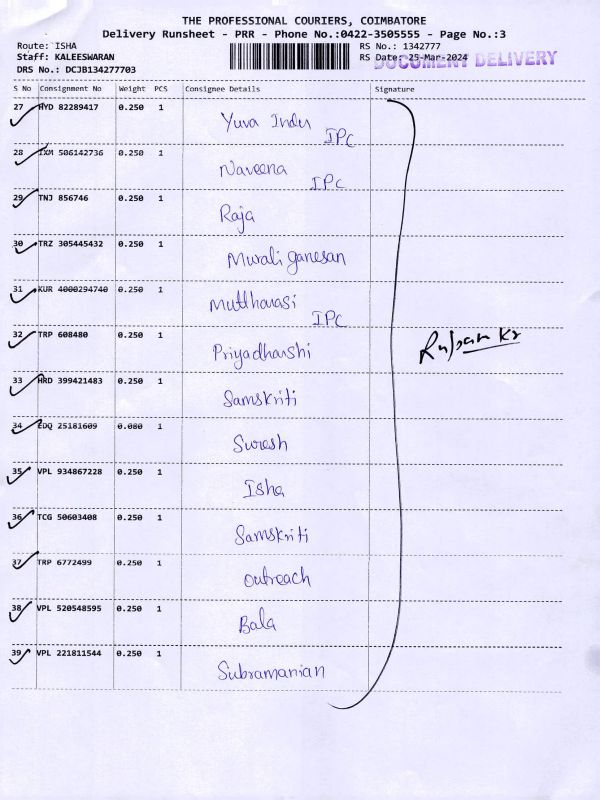 THE PROFESSIONAL COURIERS, COIMBATORE
Delivery Runsheet - PRR - Phone No.:0422-3505555 - Page No.:3
Route: ISHA
Staff: KALEESWARAN
DRS No.: DCJB134277703
RS No.: 1342777
RS Date: 25-Mar-2024
DOCUMENT DELIVERY
S No Consignment No Weight PCS Consignee Details Signature
27 HYD 82289417 0.250 1 Yuva Indu IPC
28 IXM 506142736 0.250 1 Naveena IPC
29 TNJ 856746 0.250 1 Raja
30 TRZ 305445432 0.250 1 Murali ganesan
31 KUR 4000294740 0.250 1 Muttharasi IPC
32 TRP 608480 0.250 1 Priyadharshi
33 HRD 399421483 0.250 1 Samskriti
34 EDQ 25181609 0.080 1 Suresh
35 VPL 934867228 0.250 1 Isha
36 TCG 50603408 0.250 1 Samskriti
37 TRP 6772499 0.250 1 Outreach
38 VPL 520548595 0.250 1 Bala
39 VPL 221811544 0.250 1 Subramanian